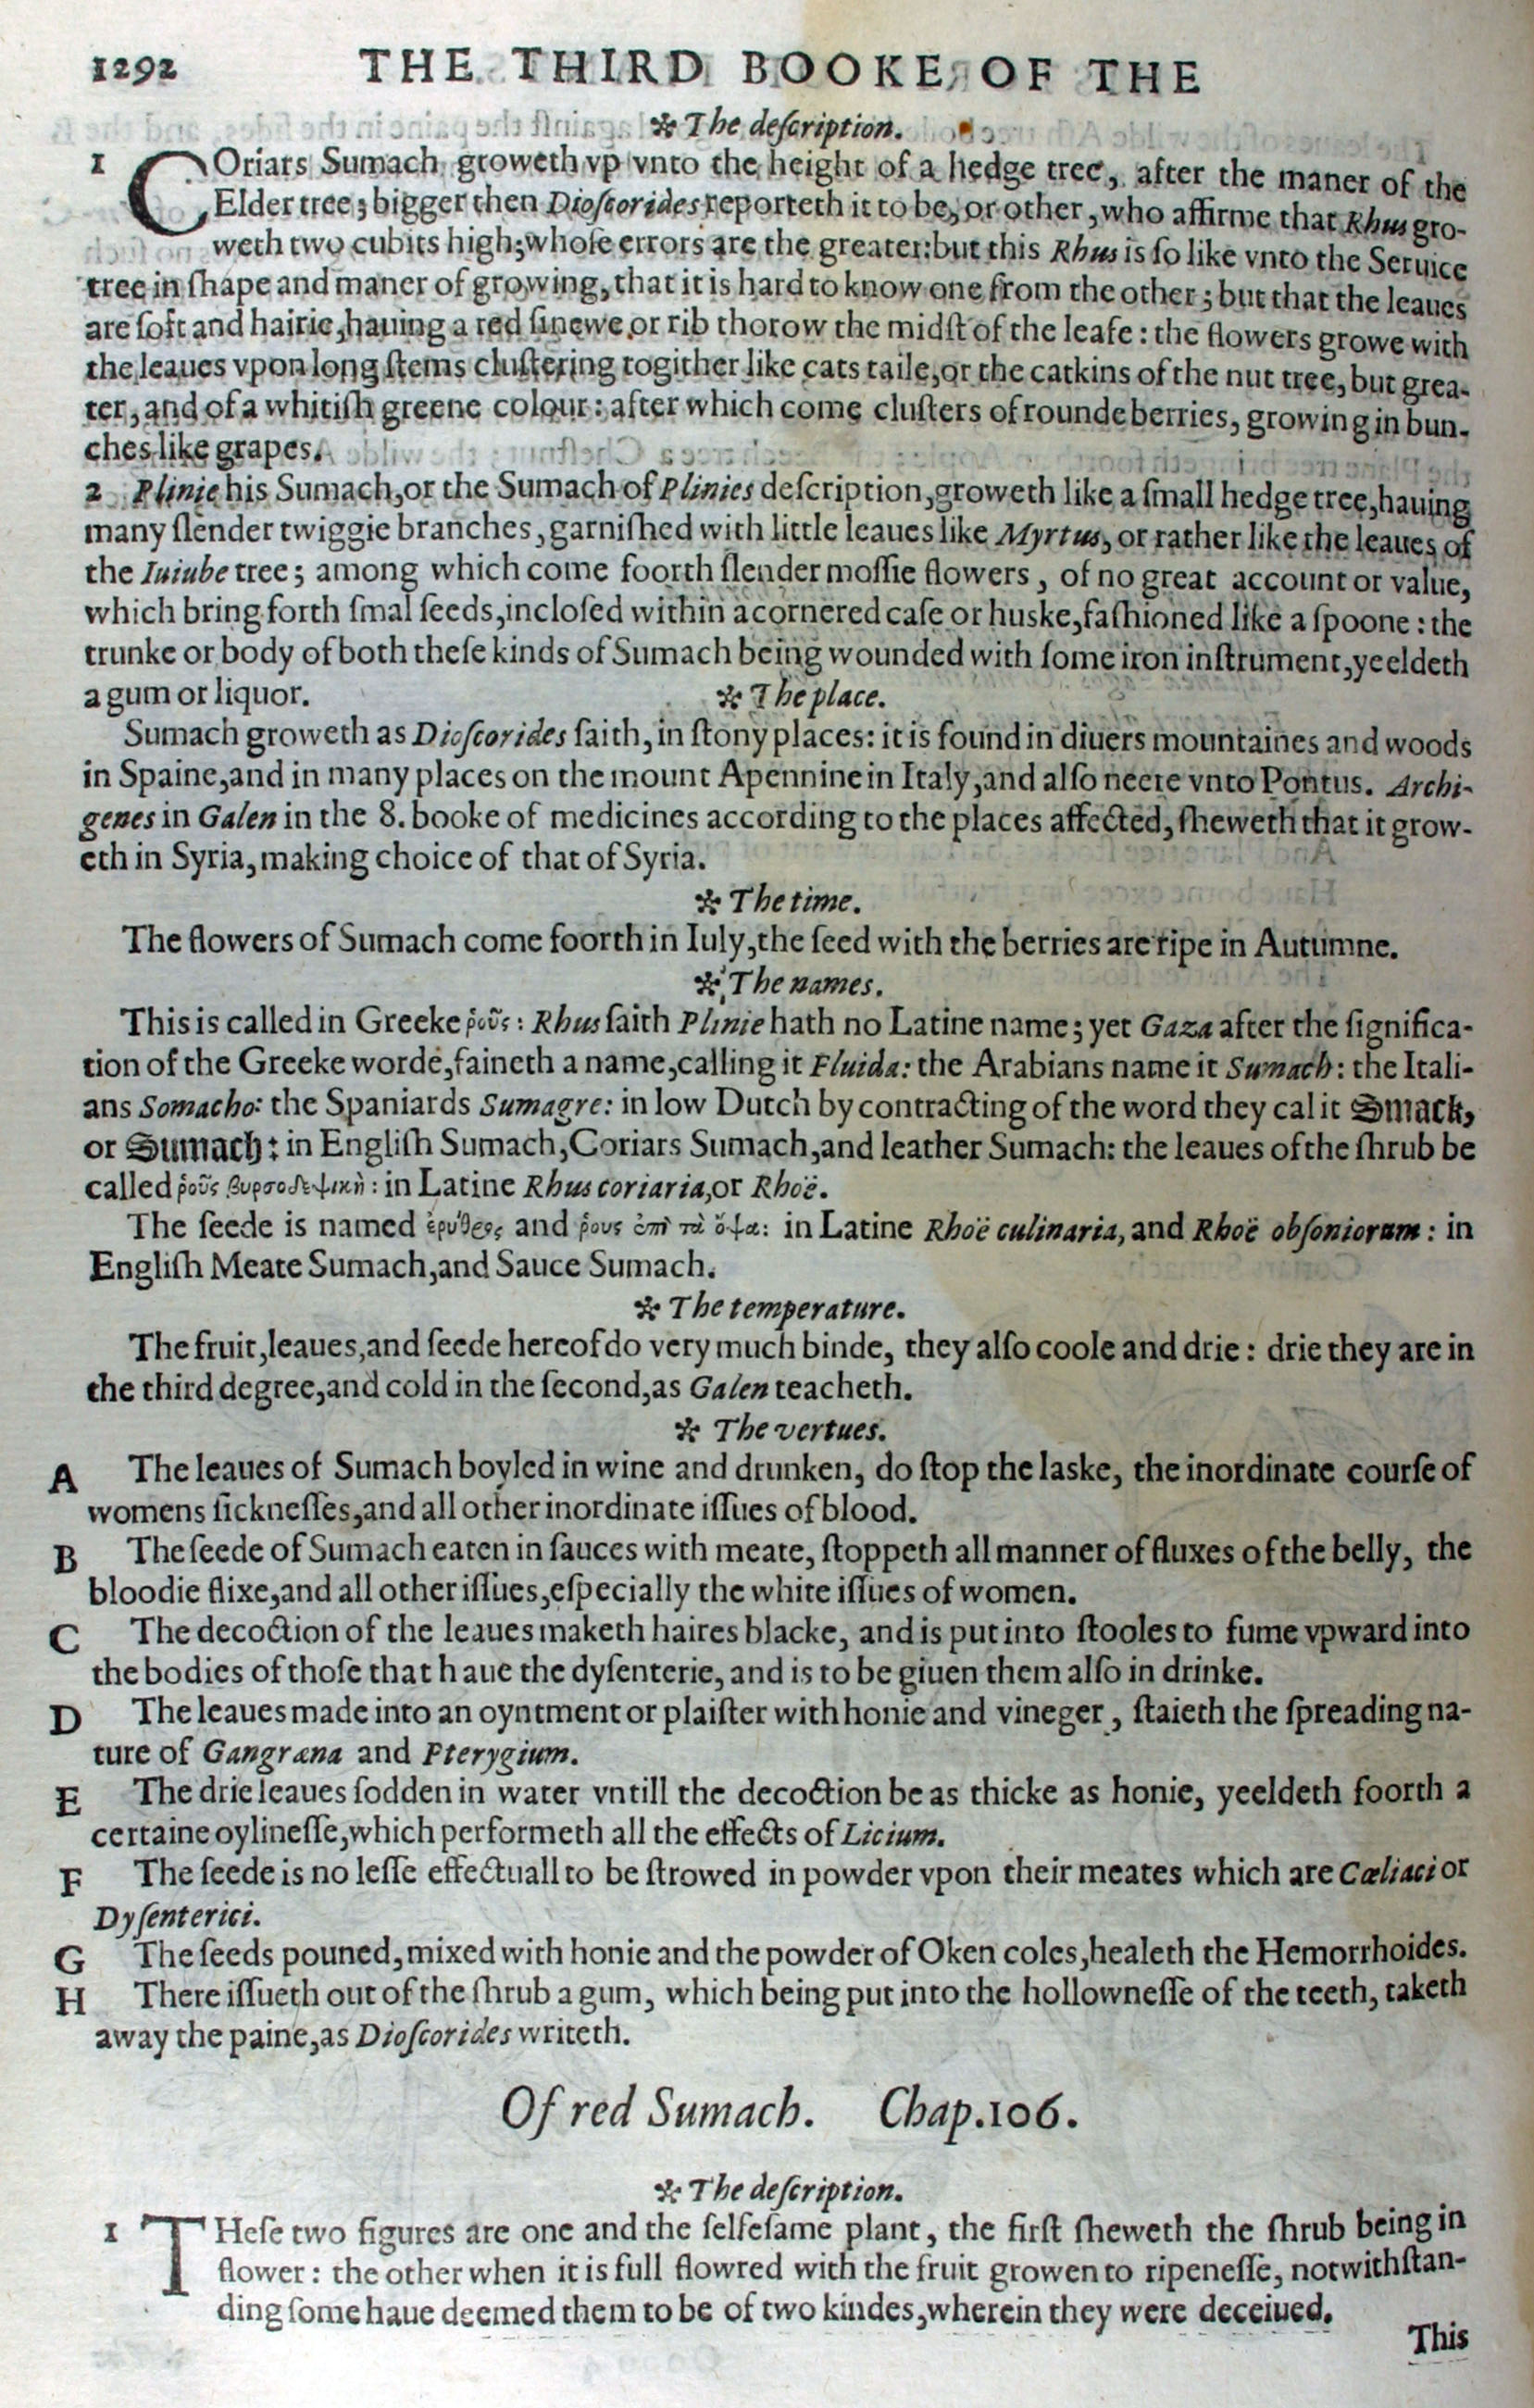 1292 THE THIRD BOOKE OF THE
❊ The deſcription.
1 COriars Sumach groweth vp vnto the height of a hedge tree, after the maner of the
Elder tree; bigger then Dioſcorides reporteth it to be, or other, who affirme that Rhus gro-
weth two cubits high; whoſe errors are the greater: but this Rhus is ſo like vnto the Seruice
tree in ſhape and maner of growing, that it is hard to know one from the other; but that the leaues
are ſoft and hairie, hauing a red ſinewe or rib thorow the midſt of the leafe: the flowers growe with
the leaues vpon long ſtems cluſtering togither like cats taile, or the catkins of the nut tree, but grea-
ter, and of a whitiſh greene colour: after which come cluſters of rounde berries, growing in bun-
ches like grapes.
2 Plinie his Sumach, or the Sumach of Plinies deſcription, groweth like a ſmall hedge tree, hauing
many ſlender twiggie branches, garniſhed with little leaues like Myrtus, or rather like the leaues of
the Iuiube tree; among which come foorth ſlender moſſie flowers, of no great account or value,
which bring forth ſmal ſeeds, incloſed within a cornered caſe or huske, faſhioned like a ſpoone: the
trunke or body of both theſe kinds of Sumach being wounded with ſome iron inſtrument, yeeldeth
a gum or liquor. ❊ The place.
Sumach groweth as Dioſcorides ſaith, in ſtony places: it is found in diuers mountaines and woods
in Spaine, and in many places on the mount Apennine in Italy, and alſo neere vnto Pontus. Archi-
genes in Galen in the 8. booke of medicines according to the places affected, ſheweth that it grow-
eth in Syria, making choice of that of Syria.
❊ The time.
The flowers of Sumach come foorth in Iuly, the ſeed with the berries are ripe in Autumne.
❊ The names.
This is called in Greeke ῥοῦς: Rhus ſaith Plinie hath no Latine name; yet Gaza after the ſignifica-
tion of the Greeke worde, faineth a name, calling it Fluida: the Arabians name it Sumach: the Itali-
ans Somacho: the Spaniards Sumagre: in low Dutch by contracting of the word they cal it Smack,
or Sumach: in Engliſh Sumach, Coriars Sumach, and leather Sumach: the leaues of the ſhrub be
called ῥοῦς βυρσοδεψικὴ: in Latine Rhus coriaria, or Rhoë.
The ſeede is named ἐρύθρος and ῥους ἐπὶ τὰ ὄψα: in Latine Rhoë culinaria, and Rhoë obſoniorum: in
Engliſh Meate Sumach, and Sauce Sumach.
❊ The temperature.
The fruit, leaues, and ſeede hereof do very much binde, they alſo coole and drie: drie they are in
the third degree, and cold in the ſecond, as Galen teacheth.
❊ The vertues.
A The leaues of Sumach boyled in wine and drunken, do ſtop the laske, the inordinate courſe of
womens ſickneſſes, and all other inordinate iſſues of blood.
B The ſeede of Sumach eaten in ſauces with meate, ſtoppeth all manner of fluxes of the belly, the
bloodie flixe, and all other iſſues, eſpecially the white iſſues of women.
C The decoction of the leaues maketh haires blacke, and is put into ſtooles to fume vpward into
the bodies of thoſe that haue the dyſenterie, and is to be giuen them alſo in drinke.
D The leaues made into an oyntment or plaiſter with honie and vineger, ſtaieth the ſpreading na-
ture of Gangræna and Pterygium.
E The drie leaues ſodden in water vntill the decoction be as thicke as honie, yeeldeth foorth a
certaine oylineſſe, which performeth all the effects of Licium.
F The ſeede is no leſſe effectuall to be ſtrowed in powder vpon their meates which are Cœliaci or
Dyſenterici.
G The ſeeds pouned, mixed with honie and the powder of Oken coles, healeth the Hemorrhoides.
H There iſſueth out of the ſhrub a gum, which being put into the hollowneſſe of the teeth, taketh
away the paine, as Dioſcorides writeth.
Of red Sumach. Chap.106.
❊ The deſcription.
1 THeſe two figures are one and the ſelfeſame plant, the firſt ſheweth the ſhrub being in
flower: the other when it is full flowred with the fruit growen to ripeneſſe, notwithſtan-
ding ſome haue deemed them to be of two kindes, wherein they were deceiued.
This